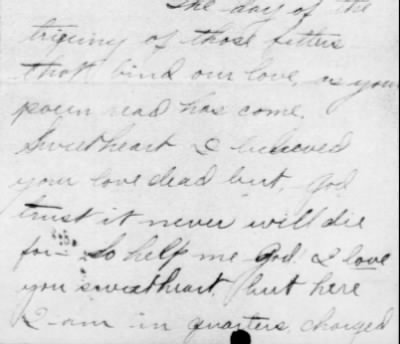 The day of the
trying of those fetters
that bind our love, as your
poem read has come.
Sweetheart I believed
your love dead but, God
trust it never will die
for— So help me God I love
you sweetheart, but here
I am in quarters, charged